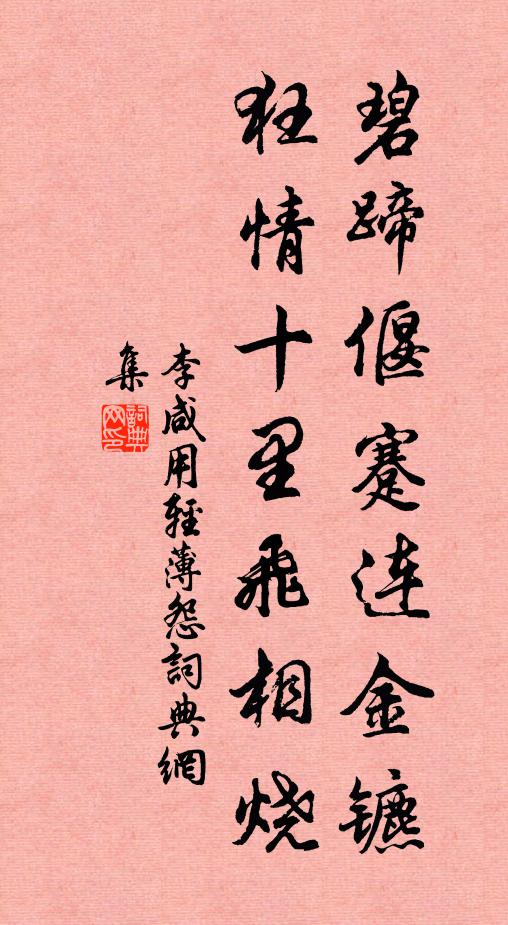 碧蹄偃蹇连金镳
狂情十里飛相烧
李咸用輕薄怨詞典網
集
詞典
网印